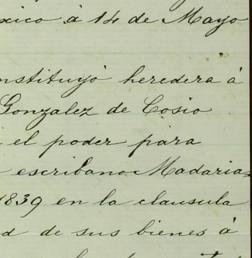 xico á 14 de Mayo
nstituyó heredera á
Gonzalez de Cosio
el poder para
escribano Madaria-
1839 en la clausula
d de sus bienes á